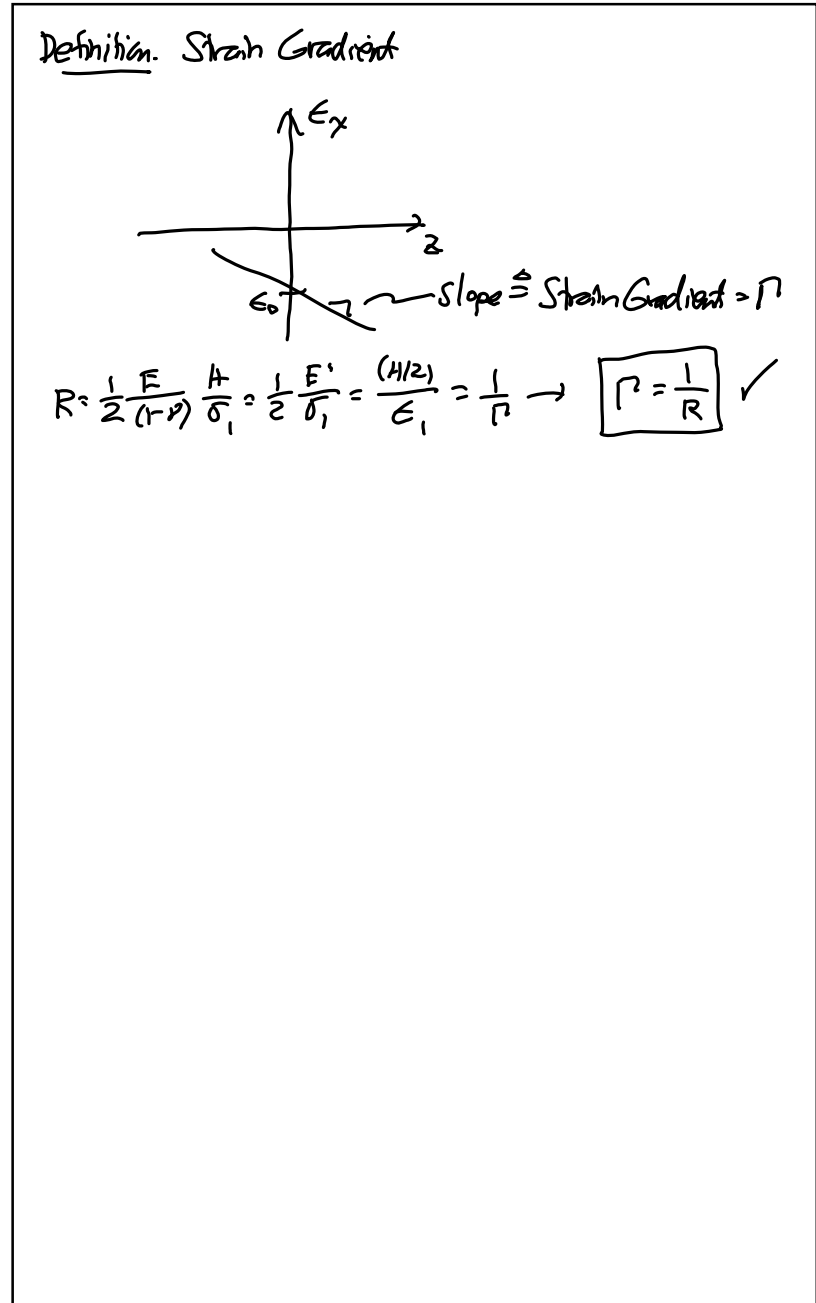 Definition. Strain Gradient
εx
z
ε0
Slope ≜ Strain Gradient = Γ
R = 1/2 E/(1-ν) H/σ1 = 1/2 E'/σ1 = (H/2)/ε1 = 1/Γ → Γ = 1/R ✓